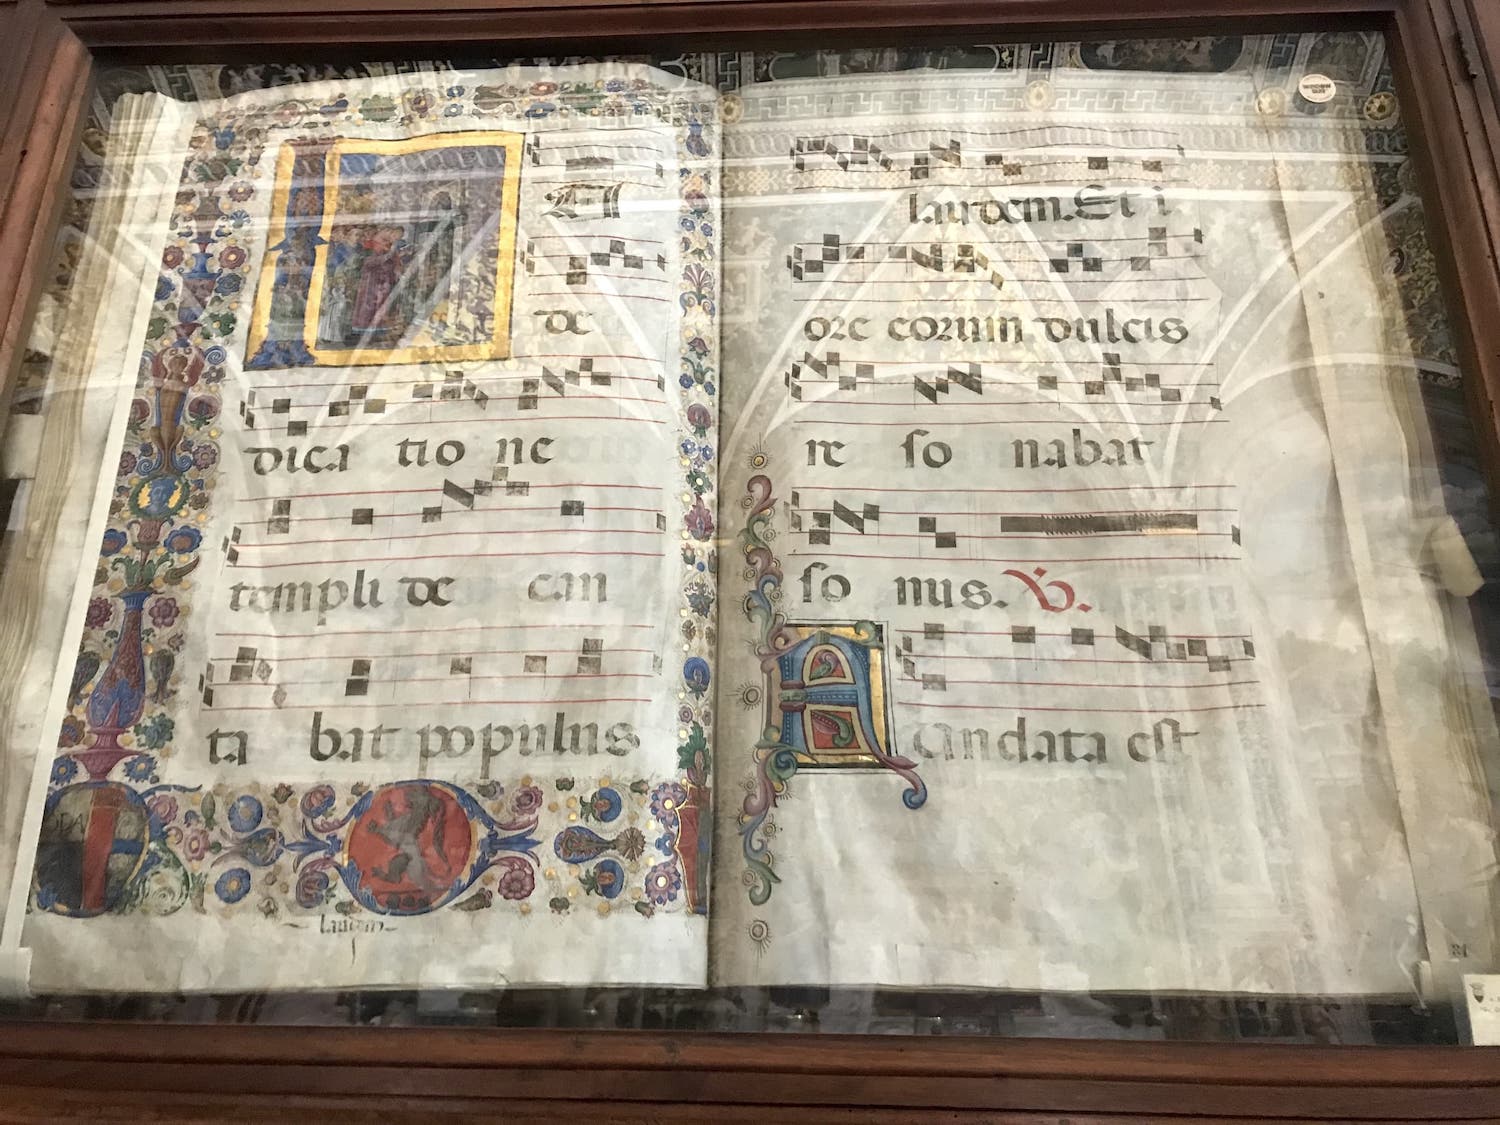 IN
de
dica tio ne
templi de can
ta bat populus
laudem
laudem. Et i
ore eorum dulcis
re so nabat
so nus. V.
Fundata est